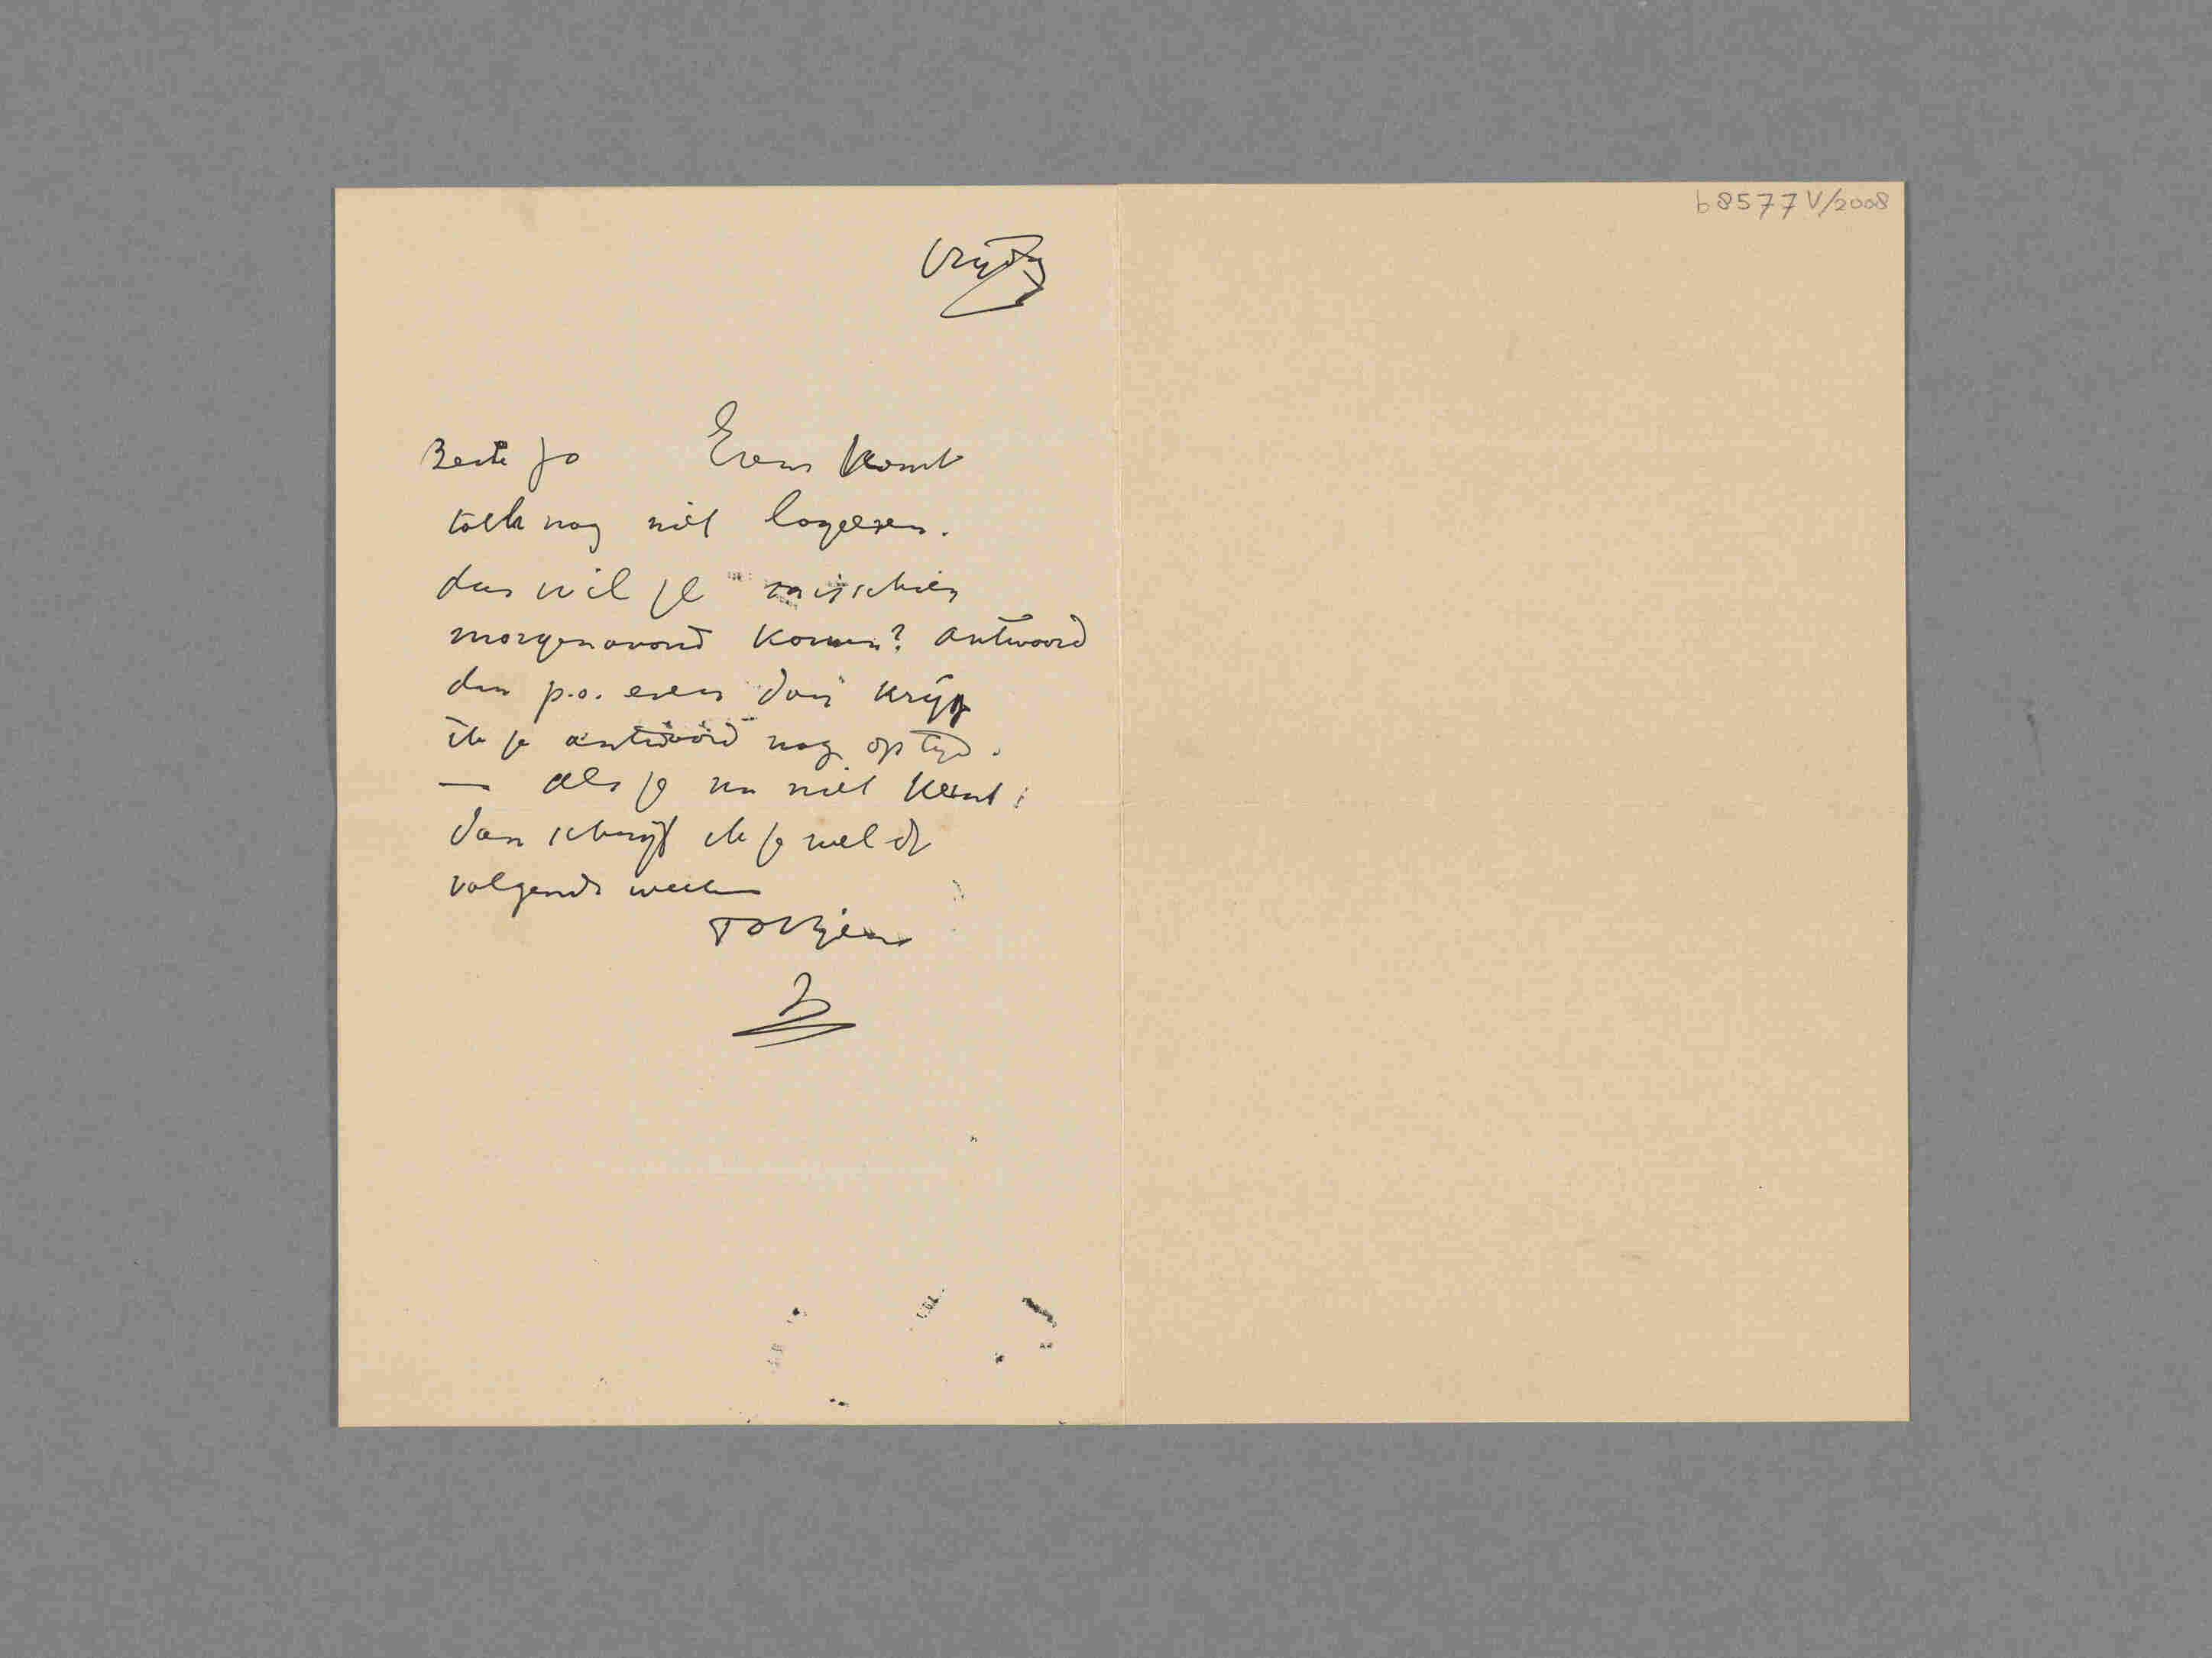 b8577 V/2008
Vrijdag
Beste Jo Erens komt
toch nog niet logeeren.
dus wil je misschien
morgenavond komen? Antwoord
dan p.o. even dan krijg
ik je antwoord nog op tijd.
— als je nu niet komt,
dan schrijf ik je wel de
volgende week